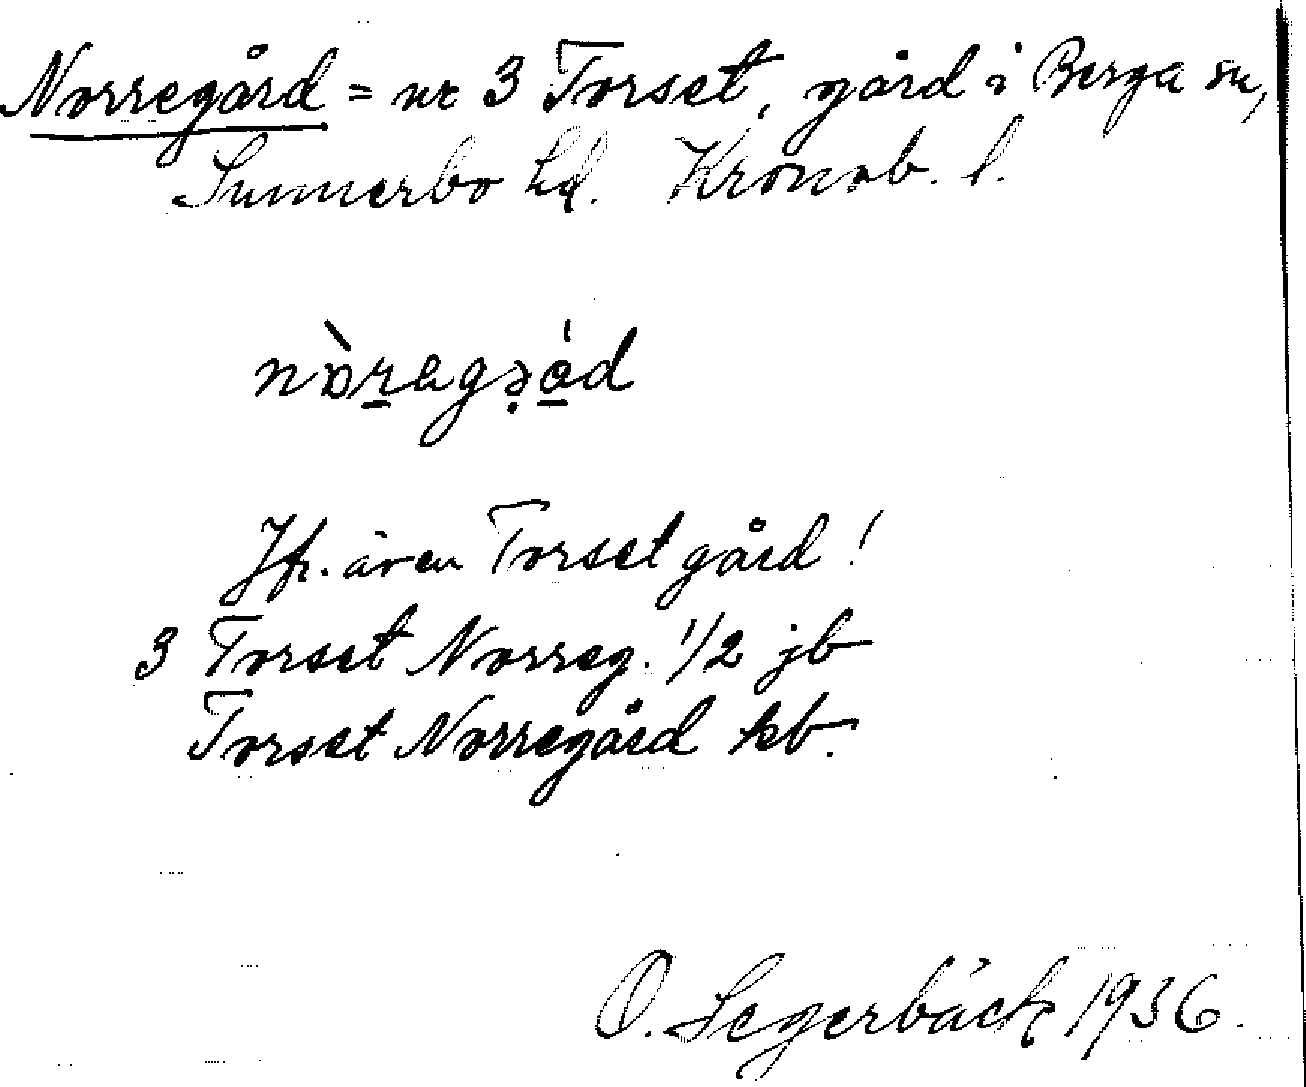 Norregård = nr 3 Torset, gård i Berga sn,
Sunnerbo hd. Kronob. l.
Jfr. även Torset gård!
3 Torset Norreg. 1/2 jb
Torset Norregård kb.
O. Segerbäck 1936.